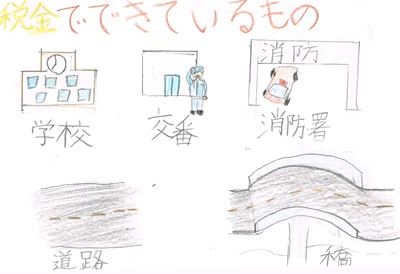 税金でできているもの
消防
学校
交番
消防署
道路
橋